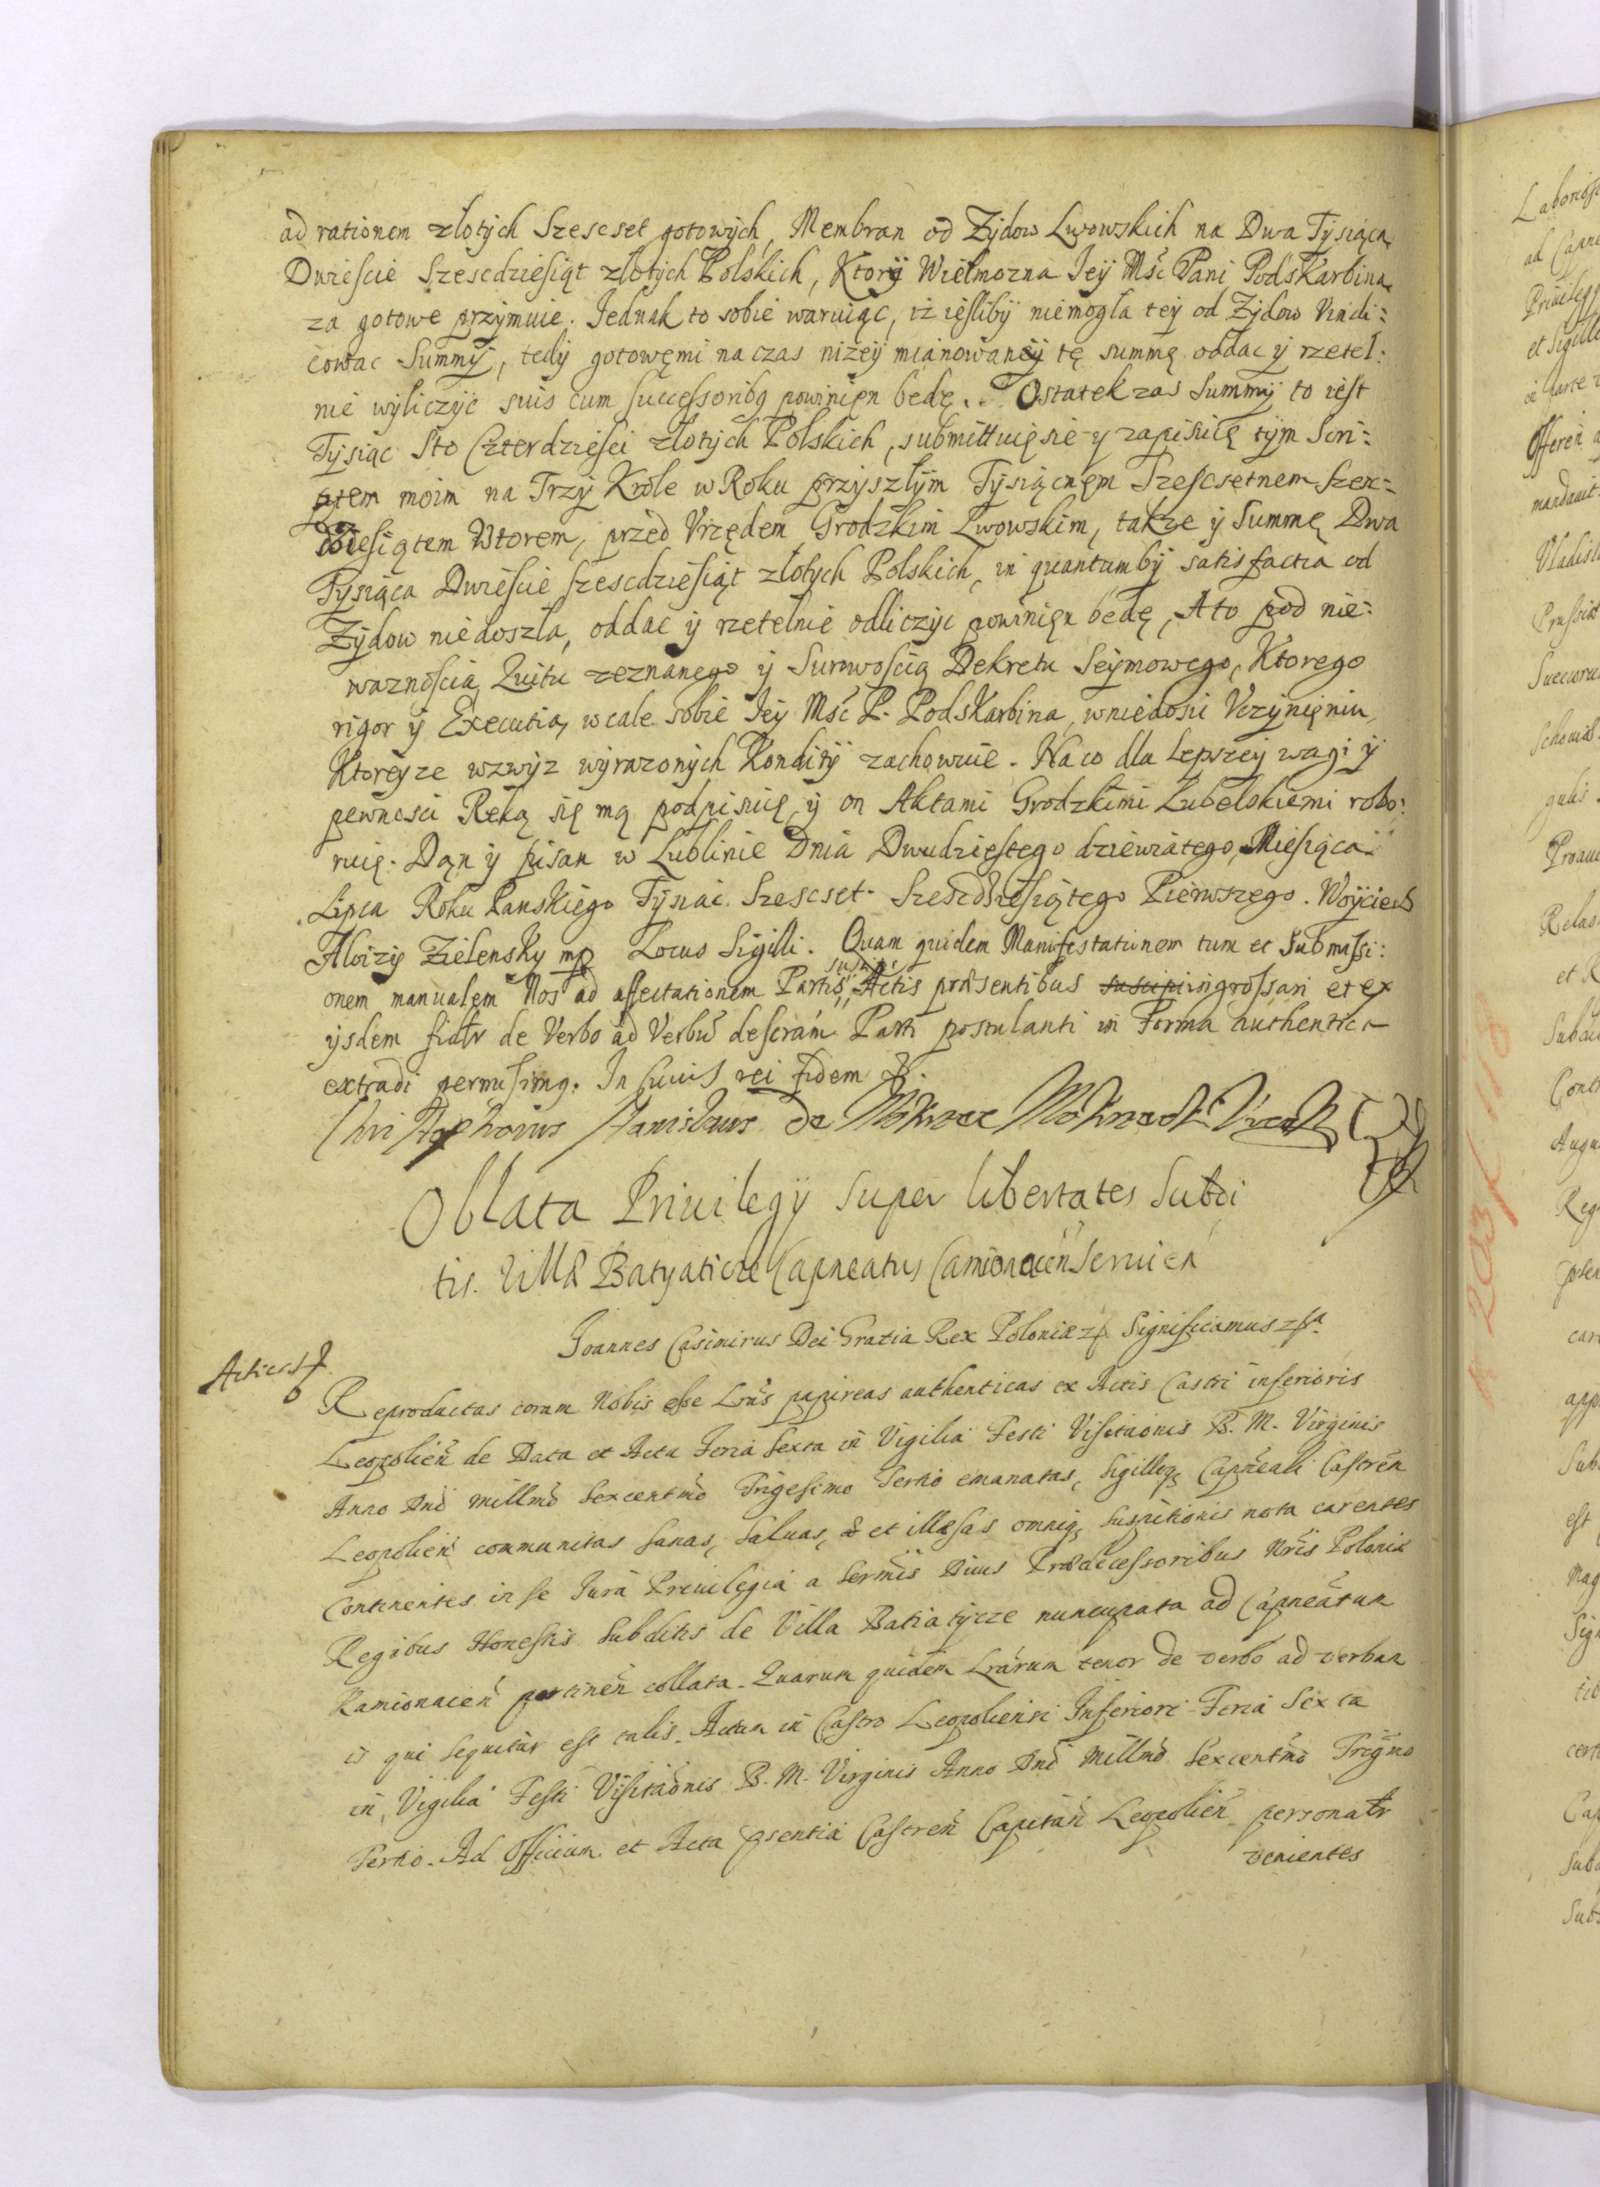 ad rationem złotÿch Szescset gotowÿch, Membran od Zÿdow Lwowskich na Dwa Tÿsiąca
Dwiescie Szescdziesiąt złotÿch Polskich, Ktorÿ Wielmozna Jeÿ Mśc Pani Podskarbina
za gotowe przÿmuie. Jednak to sobie waruiąc, iż iesliby niemogła teÿ od Zÿdow Vindi:
cowac Summÿ, tedÿ gotowęmi na czas nizeÿ mianowaneÿ tę summę oddac ÿ rzetel:
nie wÿliczÿc suis cum successoribꝫ powinięn bedę. Ostatek zas Summÿ to iest
Tÿsiąc Sto Czterdziesci złotÿch Polskich, submittuię sie y zapisuię tÿm Scri:
ptem moim na Trzÿ Krole w Roku przÿszłÿm Tÿsiącnęm Szescsetnem Szesc=
dziesiątem Wtorem, przed Vrzędem Grodzkim Lwowskim, takze ÿ Summę Dwa
Tÿsiąca Dwiescie szescdziesiąt złotych Polskich, in quantumbÿ satisfactia od
Zÿdow niedoszła, oddac ÿ rzetelnie odliczÿc powinięn bedę, A to pod nie:
waznoscią Quitu zeznanego ÿ Surowoscią Dekretu Seÿmowego, Ktorego
rigor ÿ Executią w cale sobie Jeÿ Mśc P. Podskarbina, w niedosić Vczÿnięniu
Ktoreÿze wzwÿz wÿrazonÿch Konditÿ zachowuie. Na co dla Lepszeÿ wagi ÿ
pewnosci Reką się mą podpisuię, ÿ on Aktami Grodzkimi Lubelskiemi robo:
ruię. Dąn ÿ pisan w Lublinie Dnia Dwudziestego dziewiątego, Miesiąca
Lipca Roku Panskiego Tÿsiąc Szescset Szescdziesiątego Pierwszego. Woÿciech
Aloizÿ Zielensky mp Locus Sigilli. Quam quidem Manifestationem tum et Submissi:
onem manualęm Nos ad affectationem Partis, suscipi Actis præsentibus suscipi ingrossari et ex
ÿsdem fidlr de Verbo ad Verbū descram Parti postulanti in Forma authentica
extradi permisimꝫ. In Cuius rei fidem
Christophorus Stanislaus de
Oblata Priuilegÿ super libertates Subdi
tis Villæ Batyaticze Capneatus Camionacen Seruien
Joannes Casimirus Dei Gratia Rex Poloniæ Significamus
Reproductas coram Nobis esse Lras papireas authenticas ex Actis Castri inferioris
Leopolien de Data et Acta Feria Sexta in Vigilia Festi Visitaonis B. M. Virginis
Anno Dni Millmo Sexcentmo Trigesimo Tertio emanatas, Sigilloꝗ Capneali Castren
Leopolien communitas sanas, saluas, et illæsas omniꝗ suspitionis nota carentes
Continentes in se Jura Priuilegia a Sermis Diuis Prædecessoribus Nris Poloniæ
Regibus Honestis Subditis de Villa Batiatÿcze nuncupata ad Capneatum
Kamionacen pertinen collata. Quarum quidem Lrarum tenor de verbo ad verbum
is qui sequitur est talis. Actum in Castro Leopoliensi Inferiori Feria Sexta
in Vigilia Festi Visitaonis B. M. Virginis Anno Dni Millmo Sexcentmo Trigmo
Tertio. Ad Officium et Acta psentia Castren Capitan Leopolien personalr
venientes